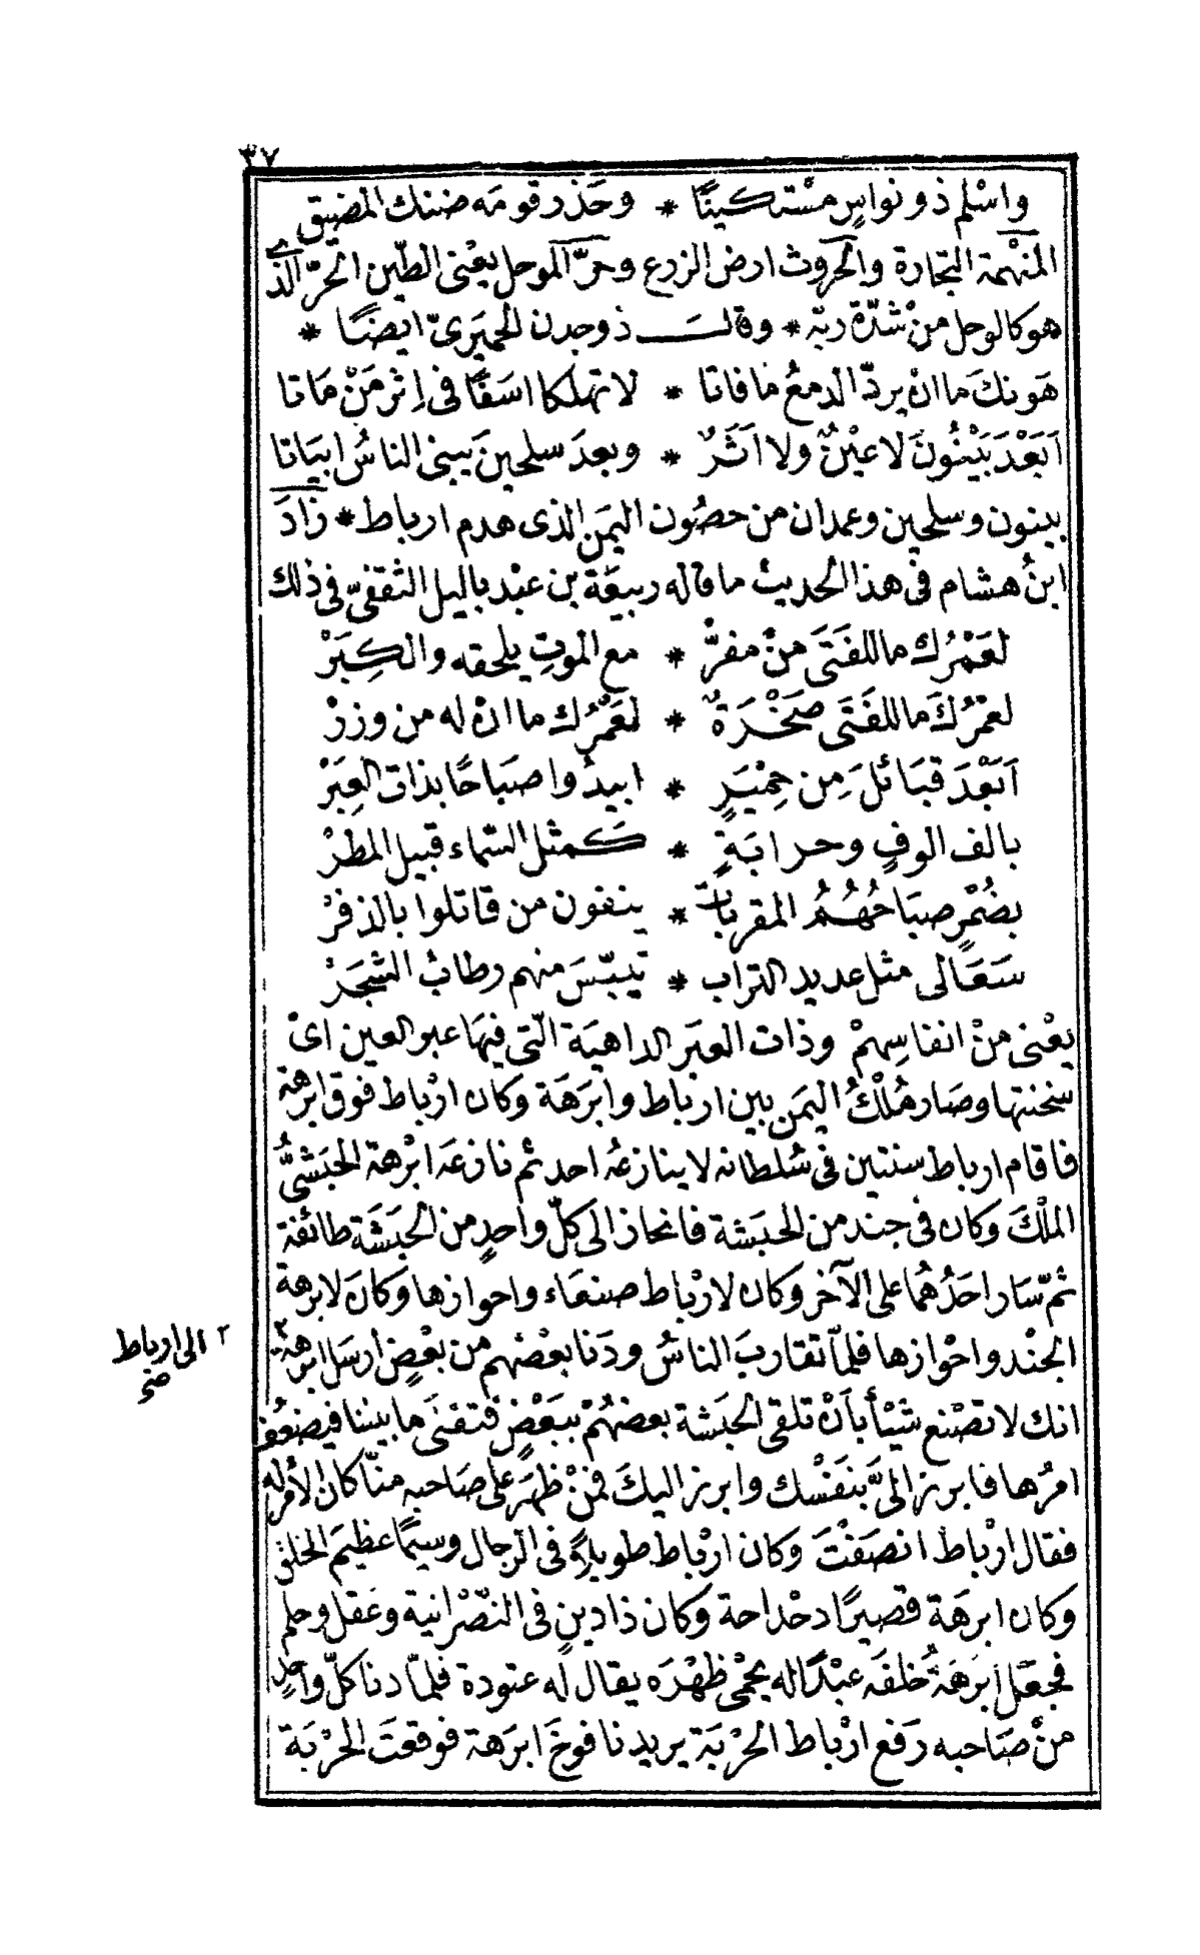 ٣٧
واسْلم ذو نواسٍ مسْتكينًا * وحَذر قومَه ضنك المضيق
المنهْمة التجارة والحروث ارض الزرع وحرّ الموحل يعْنى الطّين الحرّ الذى
هو كالوحل منْ شدّة ريّه * وقالَ ذوجدن الحميَرىّ ايضًا *
هَونكَ ما انْ يردّ الدمعُ ما فاتا * لا تهلكا اسَفًا فى اِثر مَنْ مَاتا
اَبَعْدَ بَيْنُونَ لا عيْنٌ ولا اَثَرٌ * وبعدَ سلحينَ يَبنى الناسُ ابيَاتا
بينون وسلحين وعمدان من حصُون اليمَن الذى هدم ارباط * زادَ
ابنُ هشام فى هذا الحديث ما قاله ربيعَة بن عبْد ياليل الثقفىّ فى ذلك
لعَمْرُك ما للفَتَى منْ مفرّ * مع الموتِ يلحقه والكِبَرْ
لعمْرُكَ ما للفَتَى صَحْرَةٌ * لعَمْرُك ما انْ له من وزرْ
اَبَعْدَ قبَائلَ مِن حِمْيَرٍ * ابيدُوا صبَاحًا بذات العِبَرْ
بالف الوفٍ وحرابَةٍ * كَمثل السّماء قبيل المطرْ
بضُمْرٍ صبَاحُهُمُ المقربات * ينفون من قاتلوا بالذفرْ
سَعَالى مثل عديد التراب * تيبّسَ منهم رطابُ الشجَرْ
يعْنى منْ انفاسِهمْ وذات العبَر الداهيَة الّتى فيهَا عبر العين اىْ
سخنتها وصَار مُلْكُ اليمَن بين ارباط وابرَهَة وكان ارْباط فوق ابرهة
فاقام ارباط سنتين فى سُلطانه لا ينازعُه احد ثم نازعَه ابْرهة الحبَشىُّ
الملْكَ وكان فى جند من الحبَشة فانحاز الى كلّ واحدٍ من الحبَشَة طائفة
ثمّ سَار احَدُهُما على الآخر وكان لارْباط صنعَاء واحوازها وكانَ لابرهة
الجنْد واحْوازها فلمّا تقاربَ الناسُ ودَنا بعْضهم من بعْضٍ ارسَل ابرهة ٢
٢ الى ارباط
صح
انك لا تصْنع شيْأ بأنْ تلقى الحبَشة بعضهُمْ ببَعْضٍ فتفنَى ما بيننا فيضعُف
امرُها فابرز الىَّ بنَفْسك وابرز اليكَ فمنْ ظهَر على صَاحبه منّا كان الامْر له
فقال ارْباط انصَفْتَ وكان ارْباط طويلاً فى الرجال وسيمًا عظيمَ الخلق
وكان ابرهَة قصيرًا دحْداحة وكان ذا دينٍ فى النّصْرانية وعَقل وحلم
فجعَل ابرَهَةُ خلفَه عبْدًا له يحْمى ظهْرَه يقال لَه عتودة فلمّا دنا كلّ واحدٍ
منْ صَاحبه رَفع ارْباط الحرْبَة يريد نافوخَ ابرَهة فوقعَت الحرْبَة